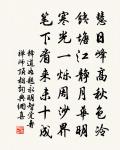 慧日峰高秋色冷
錢塘江靜月華明
寒光一爍周沙界
筆下看來未十成
釋道昌題永明智覺壽
禪師頂相詞典網喜